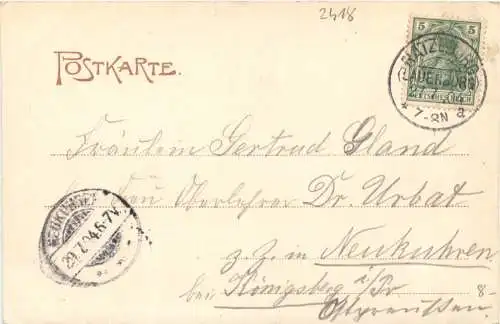 2418
POSTKARTE.
5
DEUTSCHES REICH
7-8N a
Fräulein Gertrud Gland
Frau Oberlehrer Dr. Urbat
z. Z. in Neukuhren
NEUKUHREN
29.7.04.6-7V.
bei Königsberg i/Pr
Ostpreussen.
8-